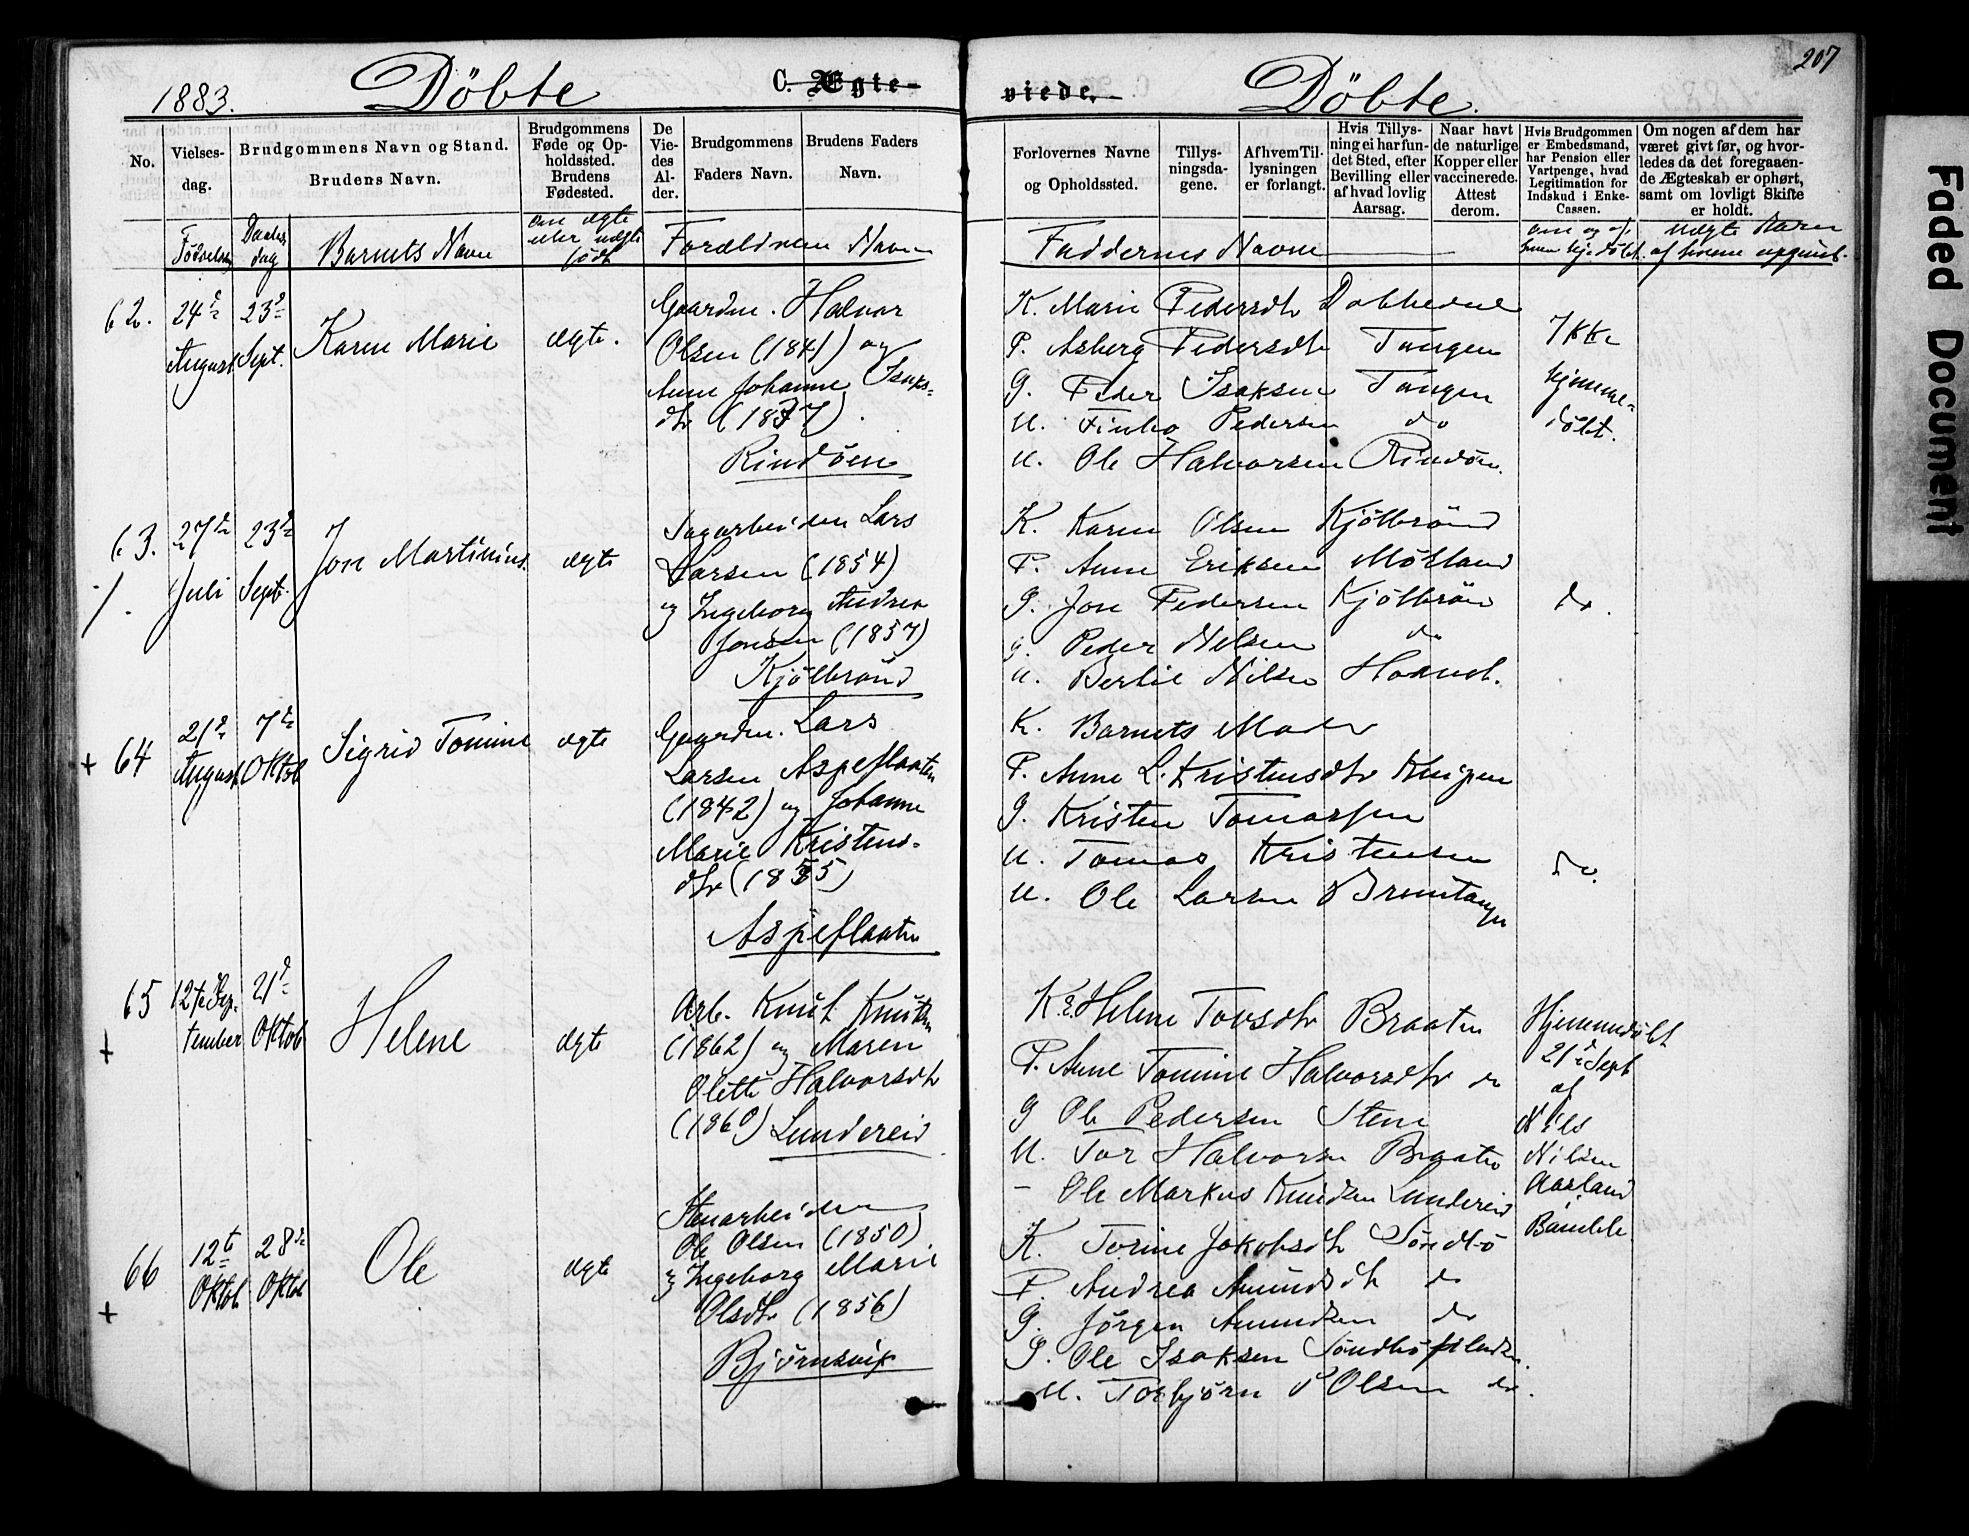 1883. Döbte C. Ægte-
No.
Vielses-
dag.
Brudgommens Navn og Stand.
Brudens Navn.
Brudgommens
Føde og Op-
holdssted.
Brudens
Fødested.
De
Vie-
des
Al-
der.
Brudgommens
Faders Navn.
Brudens Faders
Navn.
Daabs
dag
Barnets Navn
om ægte
eller uægte
født
Forældrenes Navn
62.
24d
August
23d
Sept.
Karen Marie
ægte.
Gaardm. Halvor
Olsen (1841) og
Anne Johanne Isaks-
dtr (1837).
Rindöen
63.
27d
Juli
23d
Sept.
Jon Martinius.
ægte
Sagarbeider Lars
Larsen (1854)
og Ingeborg Andrea
Jonsen (1857)
Kjölbrönd
64
21d
August
7d
Oktob
Sigrid Tomine
ægte
Gaardm. Lars
Larsen Aspeflaaten
(1842) og Johanne
Marie Kristens-
dtr (1855)
Aspeflaaten
65
12te Sep-
tember
21d
Oktob
Helene
ægte
Arb. Knut Knutsen
(1862) og Maren
Olette Halvorsdtr
(1860) Lundereid
66
12t
Oktob
28d
Oktob
Ole
ægte
Stenarbeider
Ole Olsen (1850)
og Ingeborg Marie
Olsdtr (1856)
Björnsvik
207
viede. Döbte.
Forlovernes Navne
og Opholdssted.
Tillys-
ningsda-
gene.
Af hvem Til-
lysningen
er forlangt.
Hvis Tillys-
ning ei har fun-
det Sted, efter
Bevilling eller
af hvad lovlig
Aarsag.
Naar havt
de naturlige
Kopper eller
vaccinerede.
Attest
derom.
Hvis Brudgommen
er Embedsmand,
har Pension eller
Vartpenge, hvad
Legitimation for
Indskud i Enke-
Cassen.
Om nogen af dem har
været givt før, og hvor-
ledes da det foregaaen-
de Ægteskab er ophørt,
samt om lovligt Skifte
er holdt.
Faddernes Navne
om og af
hvem hj. döbt.
Uægte Barn
af hvem opgivet.
K. Marie Pedersdtr
P. Asberg Pedersdtr Tangen
G. Peder Isaksen Tangen
U. Pedersen do
U. Ole Halvorsen Rindöen.
Ikke
hjemme-
döbt.
K. Karen Olsen Kjölbrönd
P. Anne Eriksen Mölland
G. Jon Pedersen Kjölbrön
G. Peder Nilsen do
U. Bertil Nilsen
do.
K. Barnets Moder
P. Anne L. Kristensdtr Knipen
G. Kristen Tomassen
U. Tomas Kristensen
U. Ole Larsen
do.
K. Helene Torsdtr Braaten
P. Anne Tomine Halvorsdtr do
G Ole Pedersen Stene
U. Tor Halvorsen Braaten
- Ole Markus Knudsen Lundereid
Hjemmedöbt
21d Sept
af
Nils
Nilsen
Aasland
Bamble
K. Torine Jakobsdtr Söndbö
P. Andrea Amundsdtr do
G. Jörgen Amundsen do
G. Ole Isaksen
U. Torbjörn Olsen do.
Faded Document